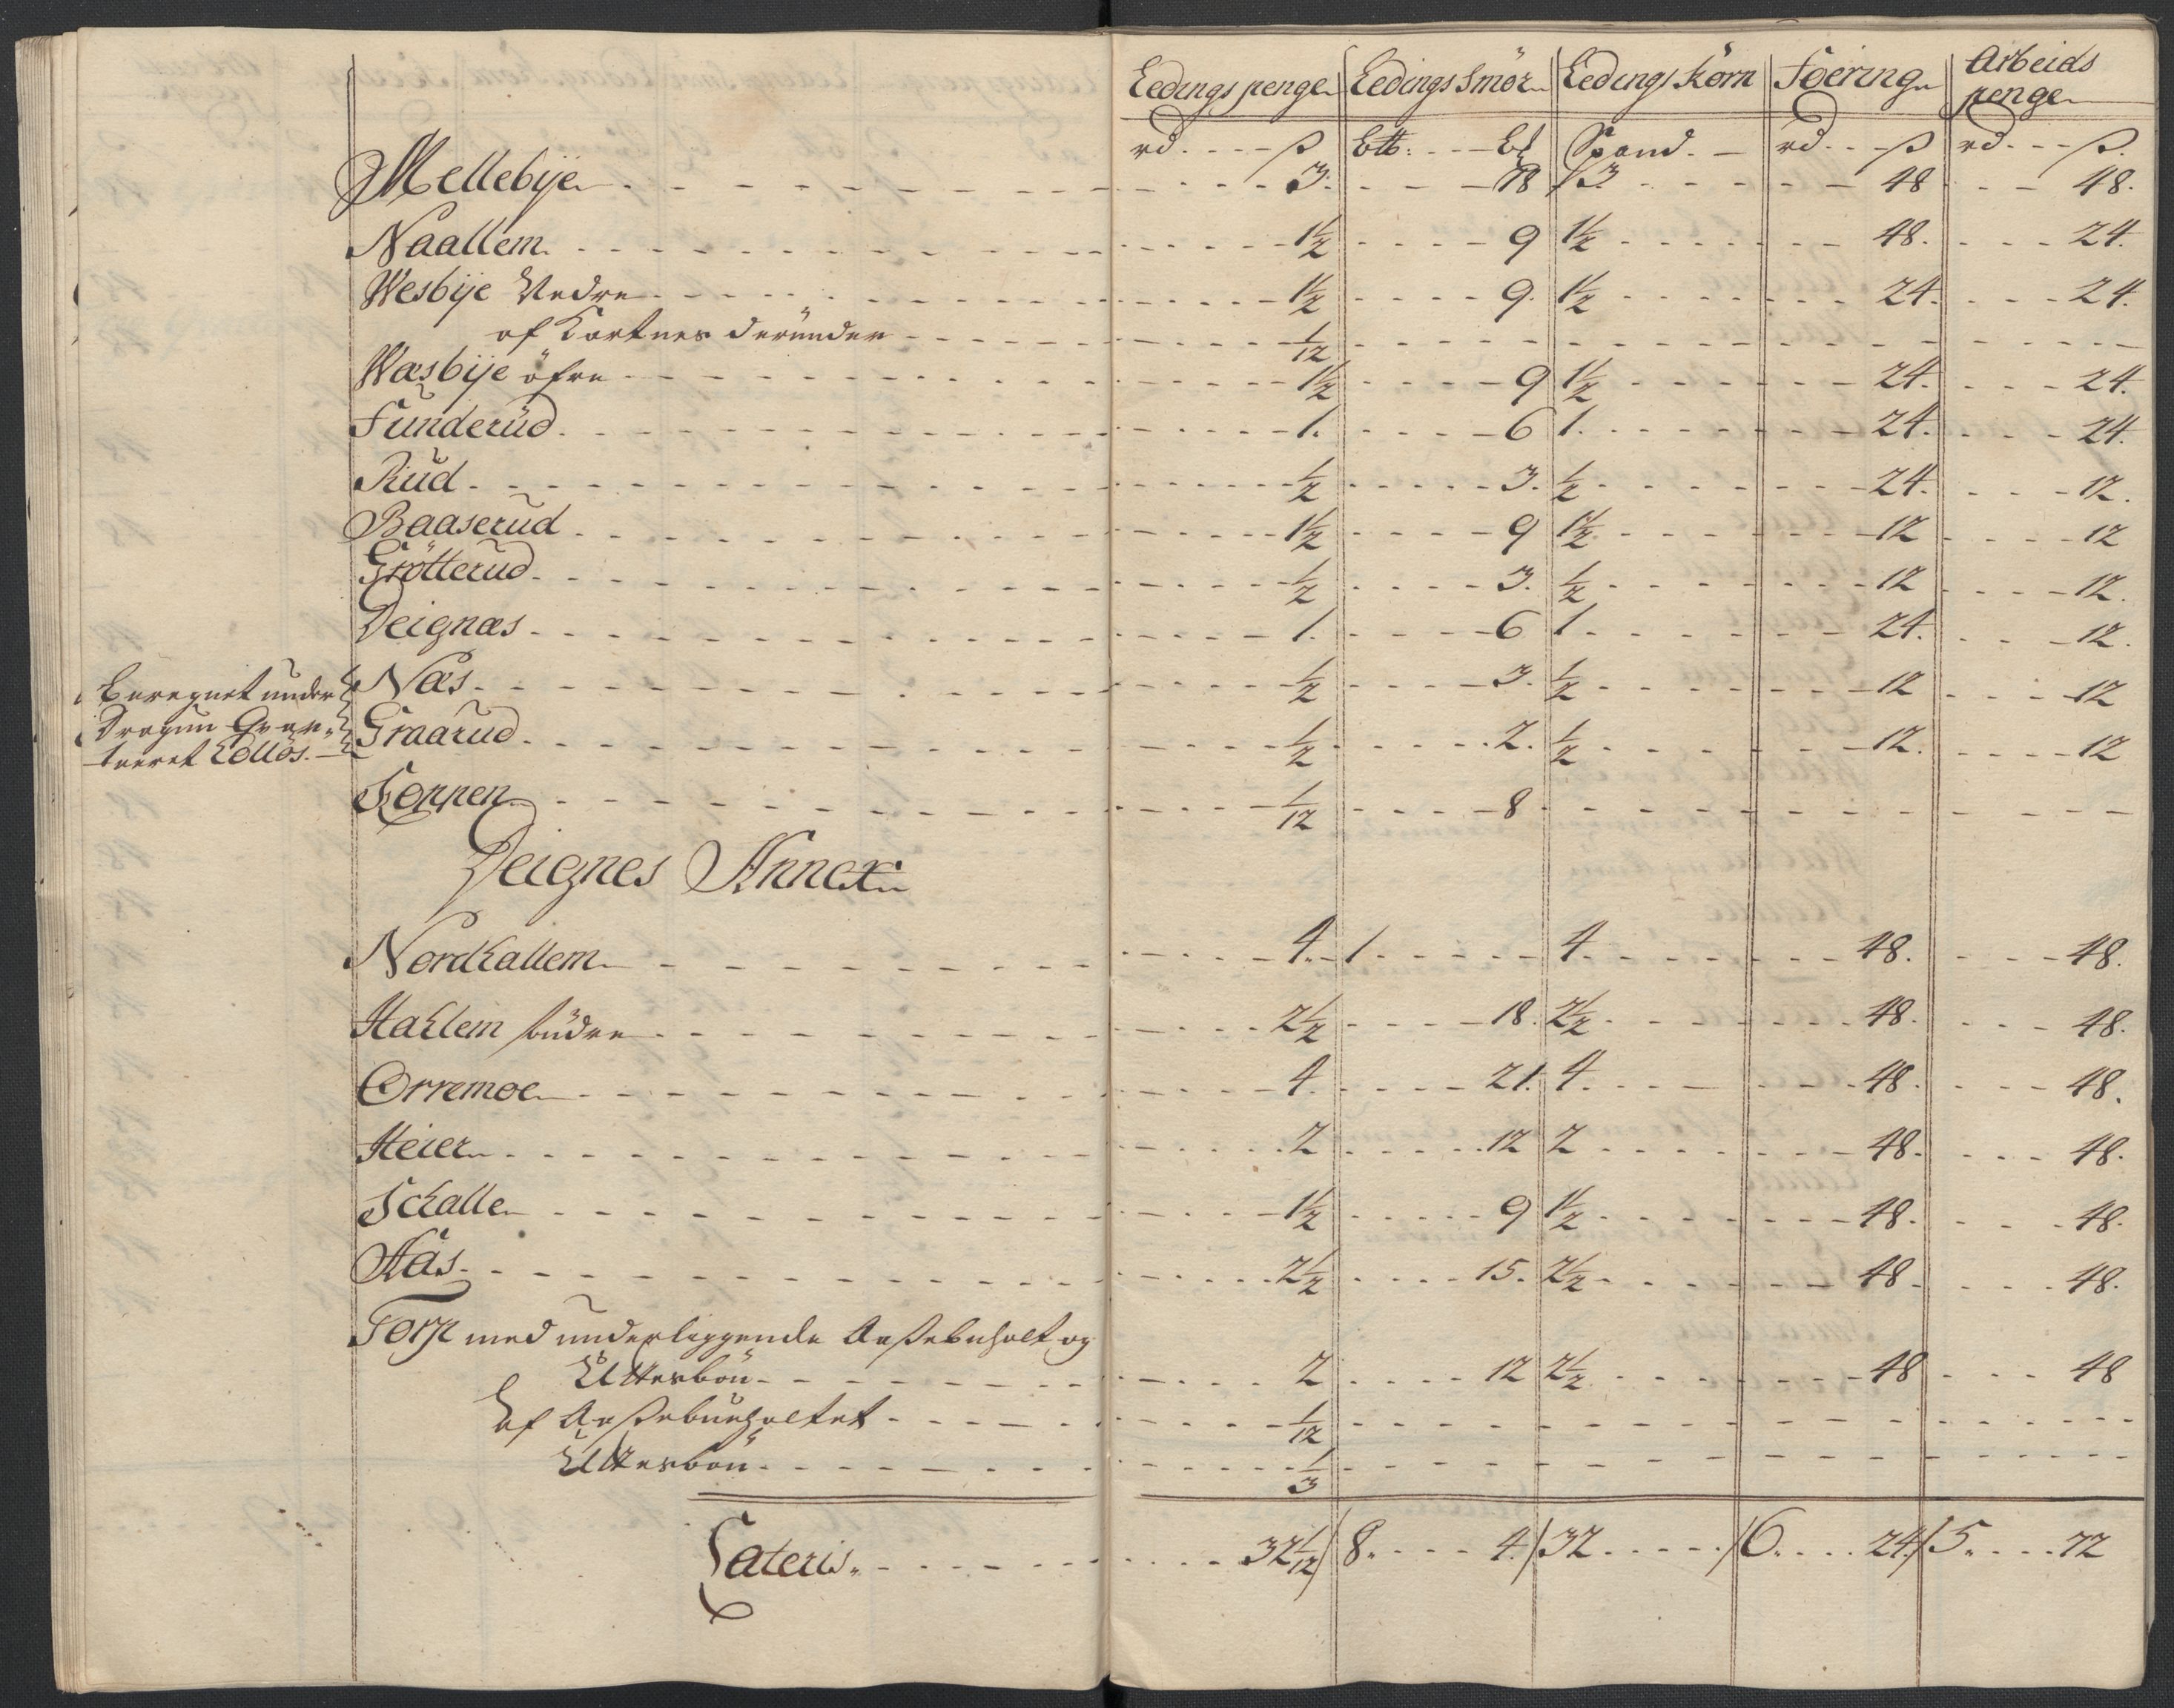 Leedings penge Leedings Smör Leedings Korn Foering Arbeids penge
rd ß B℔ ℔ Spand rd ß rd ß
Mellebÿe 3. 18 3 48 48.
Naallem 1½ 9 1½ 48. 24.
Wesbÿe Nedre 1½ 9. 1½ 24. 24.
af Kortnes derunder 1/12
Wæsbÿe öfre 1½ 9 1½ 24. 24.
Funderud 1. 6 1. 24. 24.
Rud ½ 3. ½ 24. 12.
Baaserud 1½ 9 1½ 12 12
Grötterud ½ 3. ½ 12 12.
Deignæs 1. 6 1 24. 12.
Næs ½ 3. ½ 12 12
Beregnet under
Dragun Qvar-
teeret Löllös.
Graarud ½ 2. ½ 12. 12
Toppen 1/12 8
Deignes Annex
Nordhallem 4. 1 4. 48. 48.
Hahlem sudre 2½ 18. 2½ 48. 48.
Orremoe 4. 21. 4. 48. 48.
Heier 2 12 2 48. 48.
Schalle 1½ 9 1½ 48. 48.
Aas 2½ 15. 2½ 48 48.
Torp med underliggende Aaßebuholt og
Utterbön 2 12 2½ 48 48
af Aaßebuholtet 1/12
Utterbön 1/3
Lateris. 32 1/12 8. 4. 32 6. 24 5. 72